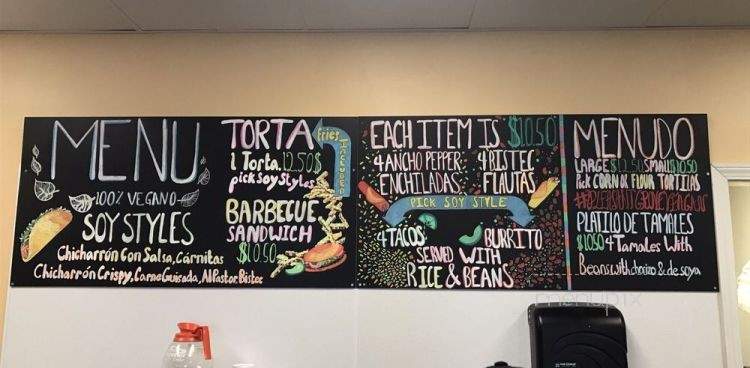 MENU
100% VEGANO
SOY STYLES
Chicharrón Con Salsa, Cárnitas
Chicharrón Crispy, Carne Guisada, Al Pastor, Bistec
TORTA
1 Torta 12.50$
pick Soy Styles
Fries
Included
BARBECUE
SANDWICH
$10.50
EACH ITEM IS $10.50
4 ANCHO PEPPER
ENCHILADAS
4 BISTEC
FLAUTAS
PICK SOY STYLE
4 TACOS
BURRITO
SERVED WITH
RICE & BEANS
MENUDO
LARGE $12.50 SMALL $10.50
Pick CORN OR FLOUR TORTILLAS
PLATILO DE TAMALES
$10.50 4 Tamales With
Beans with choizo & de soya